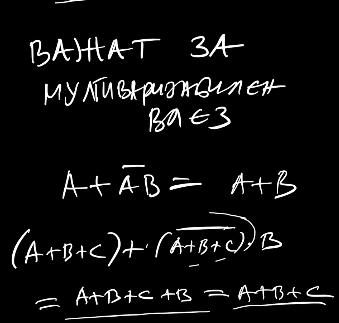 ВАЖАТ ЗА
МУЛТИВАРИАБИЛЕН
ВЛЕЗ
A + A̅B = A+B
(A+B+C) + (\overline{A+B+C}) B
= A+B+C+B = A+B+C